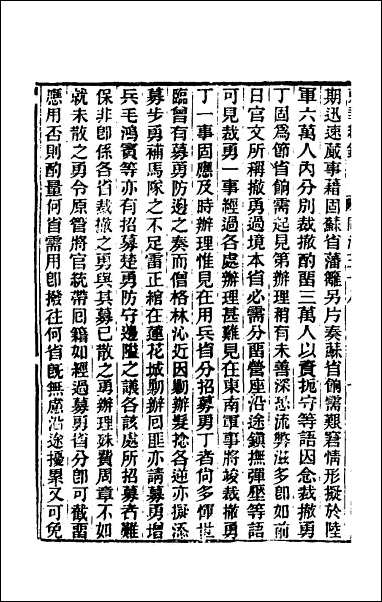 期迅速蕆事藉固蘇省藩籬另片奏蘇省餉需艱窘情形擬於陸
軍六萬人內分别裁撤酌畱三萬人以資扼守等語因念裁撤勇
丁固爲節省餉需起見第辦理稍有未善深恐流弊滋多卽如前
日官文所稱撤勇過境本省必需分畱營座沿途鎭撫彈壓等語
可見裁勇一事經過各處辦理甚難見在東南軍事將竣裁撤勇
丁一事固應及時辦理惟見在用兵省分招募勇丁者尙多惲世
臨曾有募勇防邊之奏而僧格林沁近因勦辦髮捻各逆亦擬添
募步勇補馬隊之不足雷正綰在蓮花城勦辦回匪亦請募勇增
兵毛鴻賓等亦有招募楚勇防守邊隘之議各該處所招募者難
保非卽係各省裁撤之勇與其募已散之勇辦理殊費周章不如
就未散之勇令原營將官統帶回籍如經過募勇省分卽可截畱
應用否則酌量何省需用卽撥往何省旣無慮沿途擾累又可免